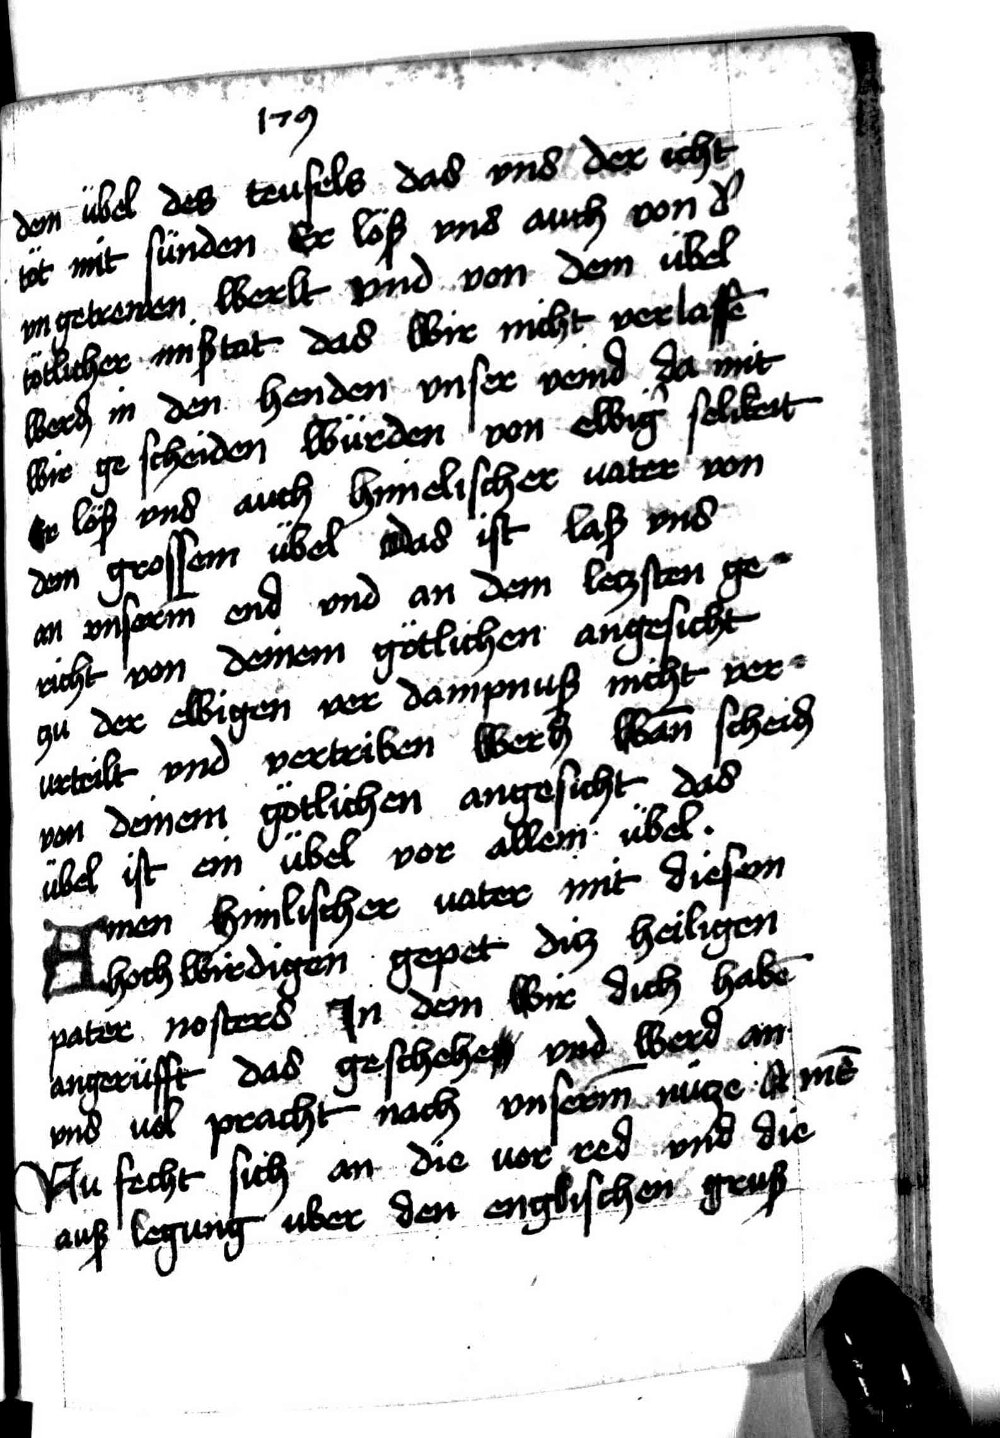 179
dem übel des teufels das vns der icht
töt mit sünden Er löß vns auch von d
vngetrewen werlt vnd von dem übel
tötlicher mißtat das wir nicht verlassē
werdn in den henden vnser veind da mit
wir ge scheiden würden von ewig selikeit
Er löß vns auch himelischer uater von
dem grossem übel das ist laß vns
an vnserm end vnd an dem letzsten ge-
richt von deinem götlichen angesicht
zu der ewigen ver dampnuß nicht ver-
urteilt vnd vertriben werdn wan̄ scheidn
von deinem götlichen angesicht das
übel ist ein übel vor allem übel.
Amen himlischer uater mit diesem
hoch wirdigen gepet ditz heiligen
pater nosters In dem wir dich habē
angerüfft das geschehe vnd werd an
vns uol pracht nach vnserm̄ nütze Amē
Nu fecht sich an die uor red vnd die
auß legung uber den englischen gruß